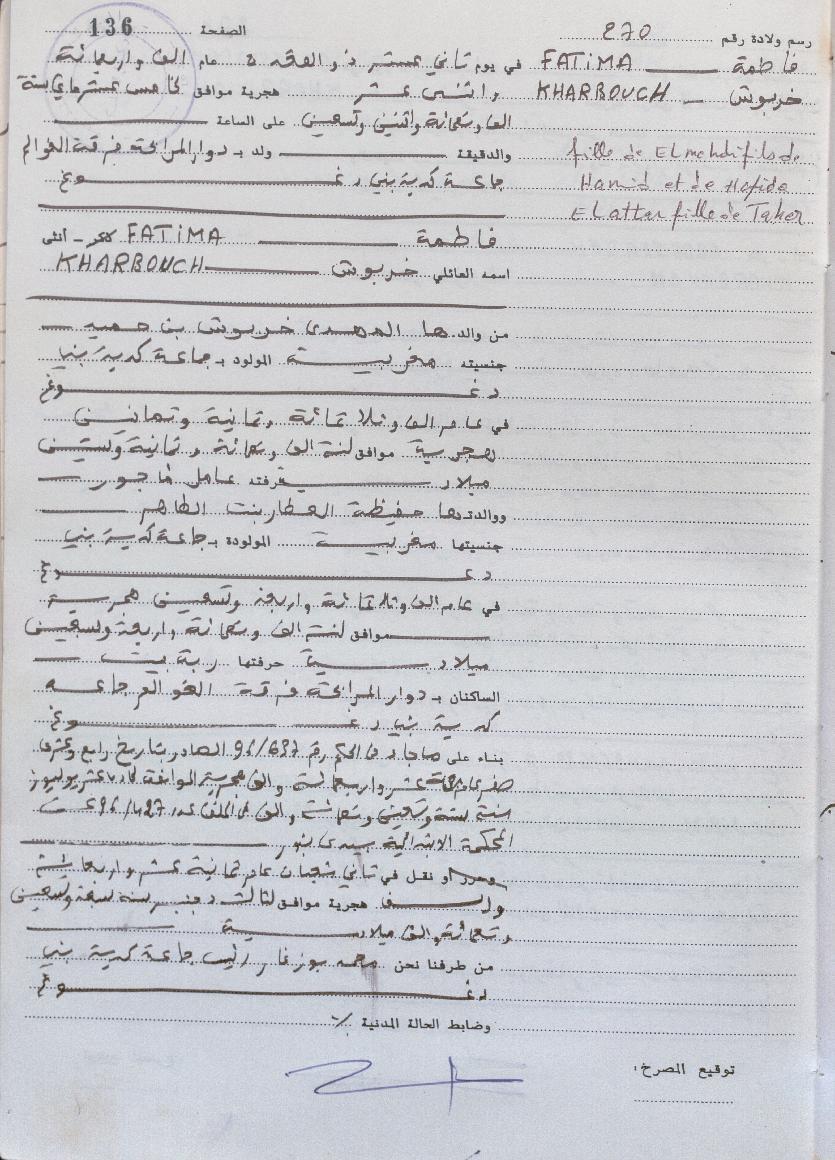 رسم ولادة رقم 270 الصفحة 136
فاطمة FATIMA
خربوش KHARBOUCH
fille de El mehdi fils de
Hamid et de Hafida
El attar fille de Taher
في يوم ثاني عشر ذو القعدة عام الف واربعمائة
واثنى عشر هجرية موافق خامس عشر ماي سنة
الف وتسعمائة واثنين وتسعين على الساعة
والدقيقة ولد بـ دوار المرابحة فرقة العوالم
جماعة كدية بني دغوغ
فاطمة FATIMA ذكر - أنثى
اسمه العائلي خربوش KHARBOUCH
من والدها المهدي خربوش بن حميد
جنسيته مغربية المولود بـ جماعة كدية بني
دغوغ
في عام الف وثلاثمائة وثمانية وثمانين
هجرية موافق لسنة الف وتسعمائة وثمانية وستين
ميلادية حرفته عامل مأجور
ووالدتها حفيظة العطار بنت الطاهر
جنسيتها مغربية المولودة بـ جماعة كدية بني
دغوغ
في عام الف وثلاثمائة واربعة وتسعين هجرية
موافق لسنة الف وتسعمائة واربعة وسبعين
ميلادية حرفتها ربة بيت
الساكنان بـ دوار المرابحة فرقة العوالم جماعة
كدية بني دغوغ
بناء على ما جاء في الحكم رقم 96/637 الصادر بتاريخ رابع وعشرين
صفر عام عشر واربعمائة والف هجرية الموافق عشر يوليوز
سنة ستة وتسعين وتسعمائة والف في الملف عدد 96/427 عن
المحكمة الابتدائية بسيدي بنور
وحرر او نقل في ثاني شعبان عام ثمانية عشر واربعمائة
والف هجرية موافق لثالث دجنبر سنة سبعة وتسعين
وتسعمائة والف ميلادية
من طرفنا نحن محمد رئيس جماعة كدية بني
دغوغ
وضابط الحالة المدنية
توقيع المصرح: